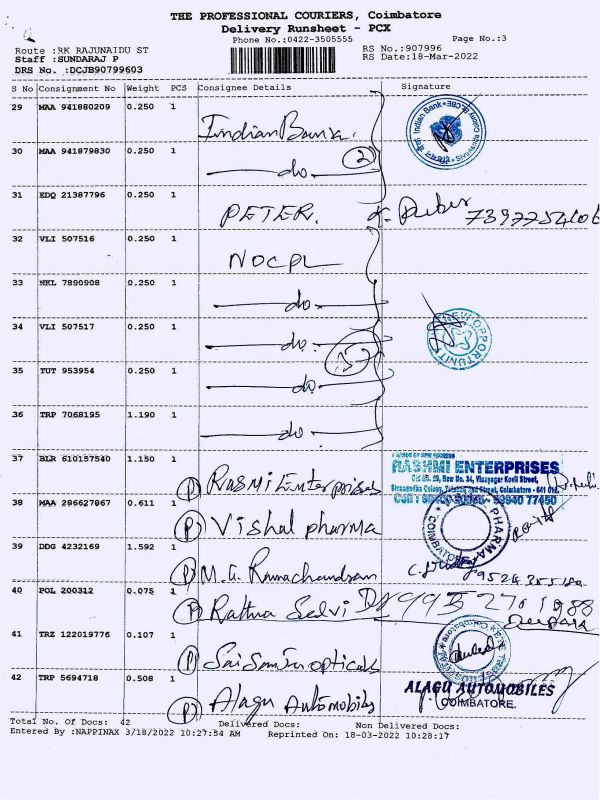 THE PROFESSIONAL COURIERS, Coimbatore
Delivery Runsheet - PCX
Phone No.:0422-3505555 Page No.:3
Route :RK RAJUNAIDU ST RS No.:907996
Staff :SUNDARAJ P RS Date:18-Mar-2022
DRS No. :DCJB90799603
S No Consignment No Weight PCS Consignee Details Signature
29 MAA 941880209 0.250 1 Indian Bank.
30 MAA 941879830 0.250 1 do 2
31 EDQ 21387796 0.250 1 PETER.
32 VLI 507516 0.250 1 NOCPL
33 NKL 7890908 0.250 1 do
34 VLI 507517 0.250 1 do
35 TUT 953954 0.250 1 do
36 TRP 7068195 1.190 1 do
37 BLR 610157540 1.150 1 P Rasmi Enterprises
RASHMI ENTERPRISES
38 MAA 286627867 0.611 1 P Vishal pharma
PHARMA COIMBATORE
39 DDG 4232169 1.592 1 P M.G. Ramachandran
40 POL 200312 0.075 1 P Rathna Selvi
41 TRZ 122019776 0.107 1 P Sai Sam Sun opticals
42 TRP 5694718 0.508 1 P Alagu Automobiles
ALAGU AUTOMOBILES
COIMBATORE.
Total No. Of Docs: 42 Delivered Docs: Non Delivered Docs:
Entered By :NAPPINAX 3/18/2022 10:27:54 AM Reprinted On: 18-03-2022 10:28:17